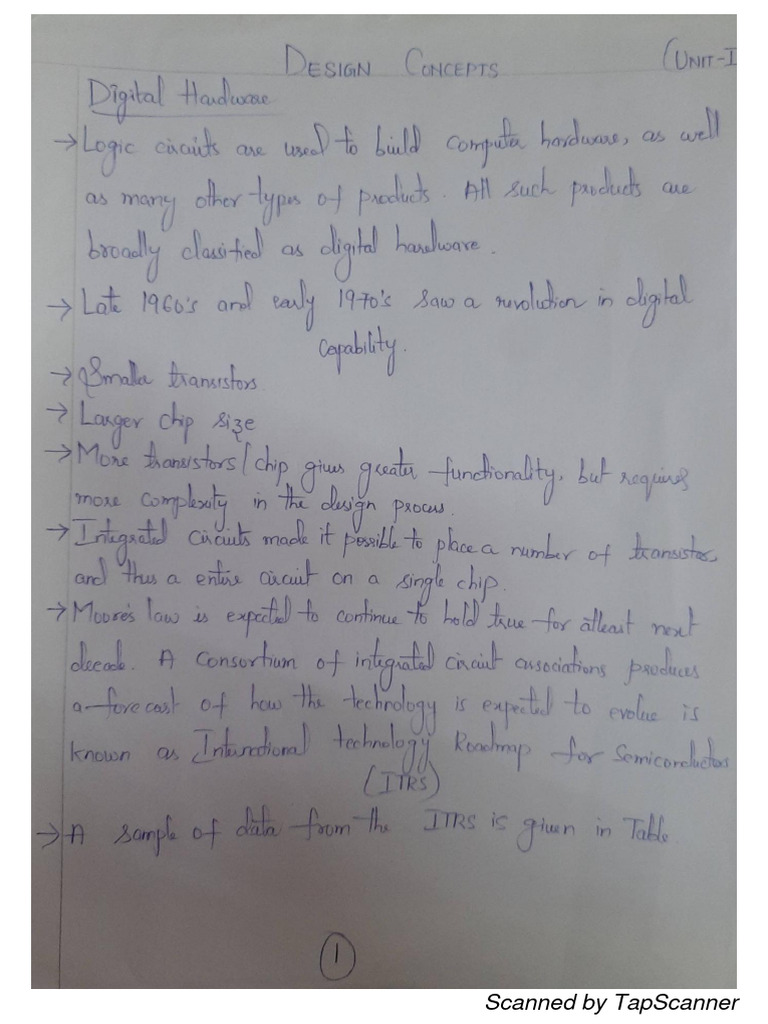 DESIGN CONCEPTS (UNIT-I
Digital Hardware
→ Logic circuits are used to build computer hardware, as well
as many other types of products. All such products are
broadly classified as digital hardware.
→ Late 1960's and early 1970's saw a revolution in digital
capability.
→ Smaller transistors
→ Larger chip size
→ More transistors/chip gives greater functionality, but requires
more complexity in the design process.
→ Integrated circuits made it possible to place a number of transistors
and thus a entire circuit on a single chip.
→ Moore's law is expected to continue to hold true for atleast next
decade. A consortium of integrated circuit associations produces
a forecast of how the technology is expected to evolve is
known as International technology Roadmap for Semiconductors
(ITRS)
→ A sample of data from the ITRS is given in Table
1
Scanned by TapScanner